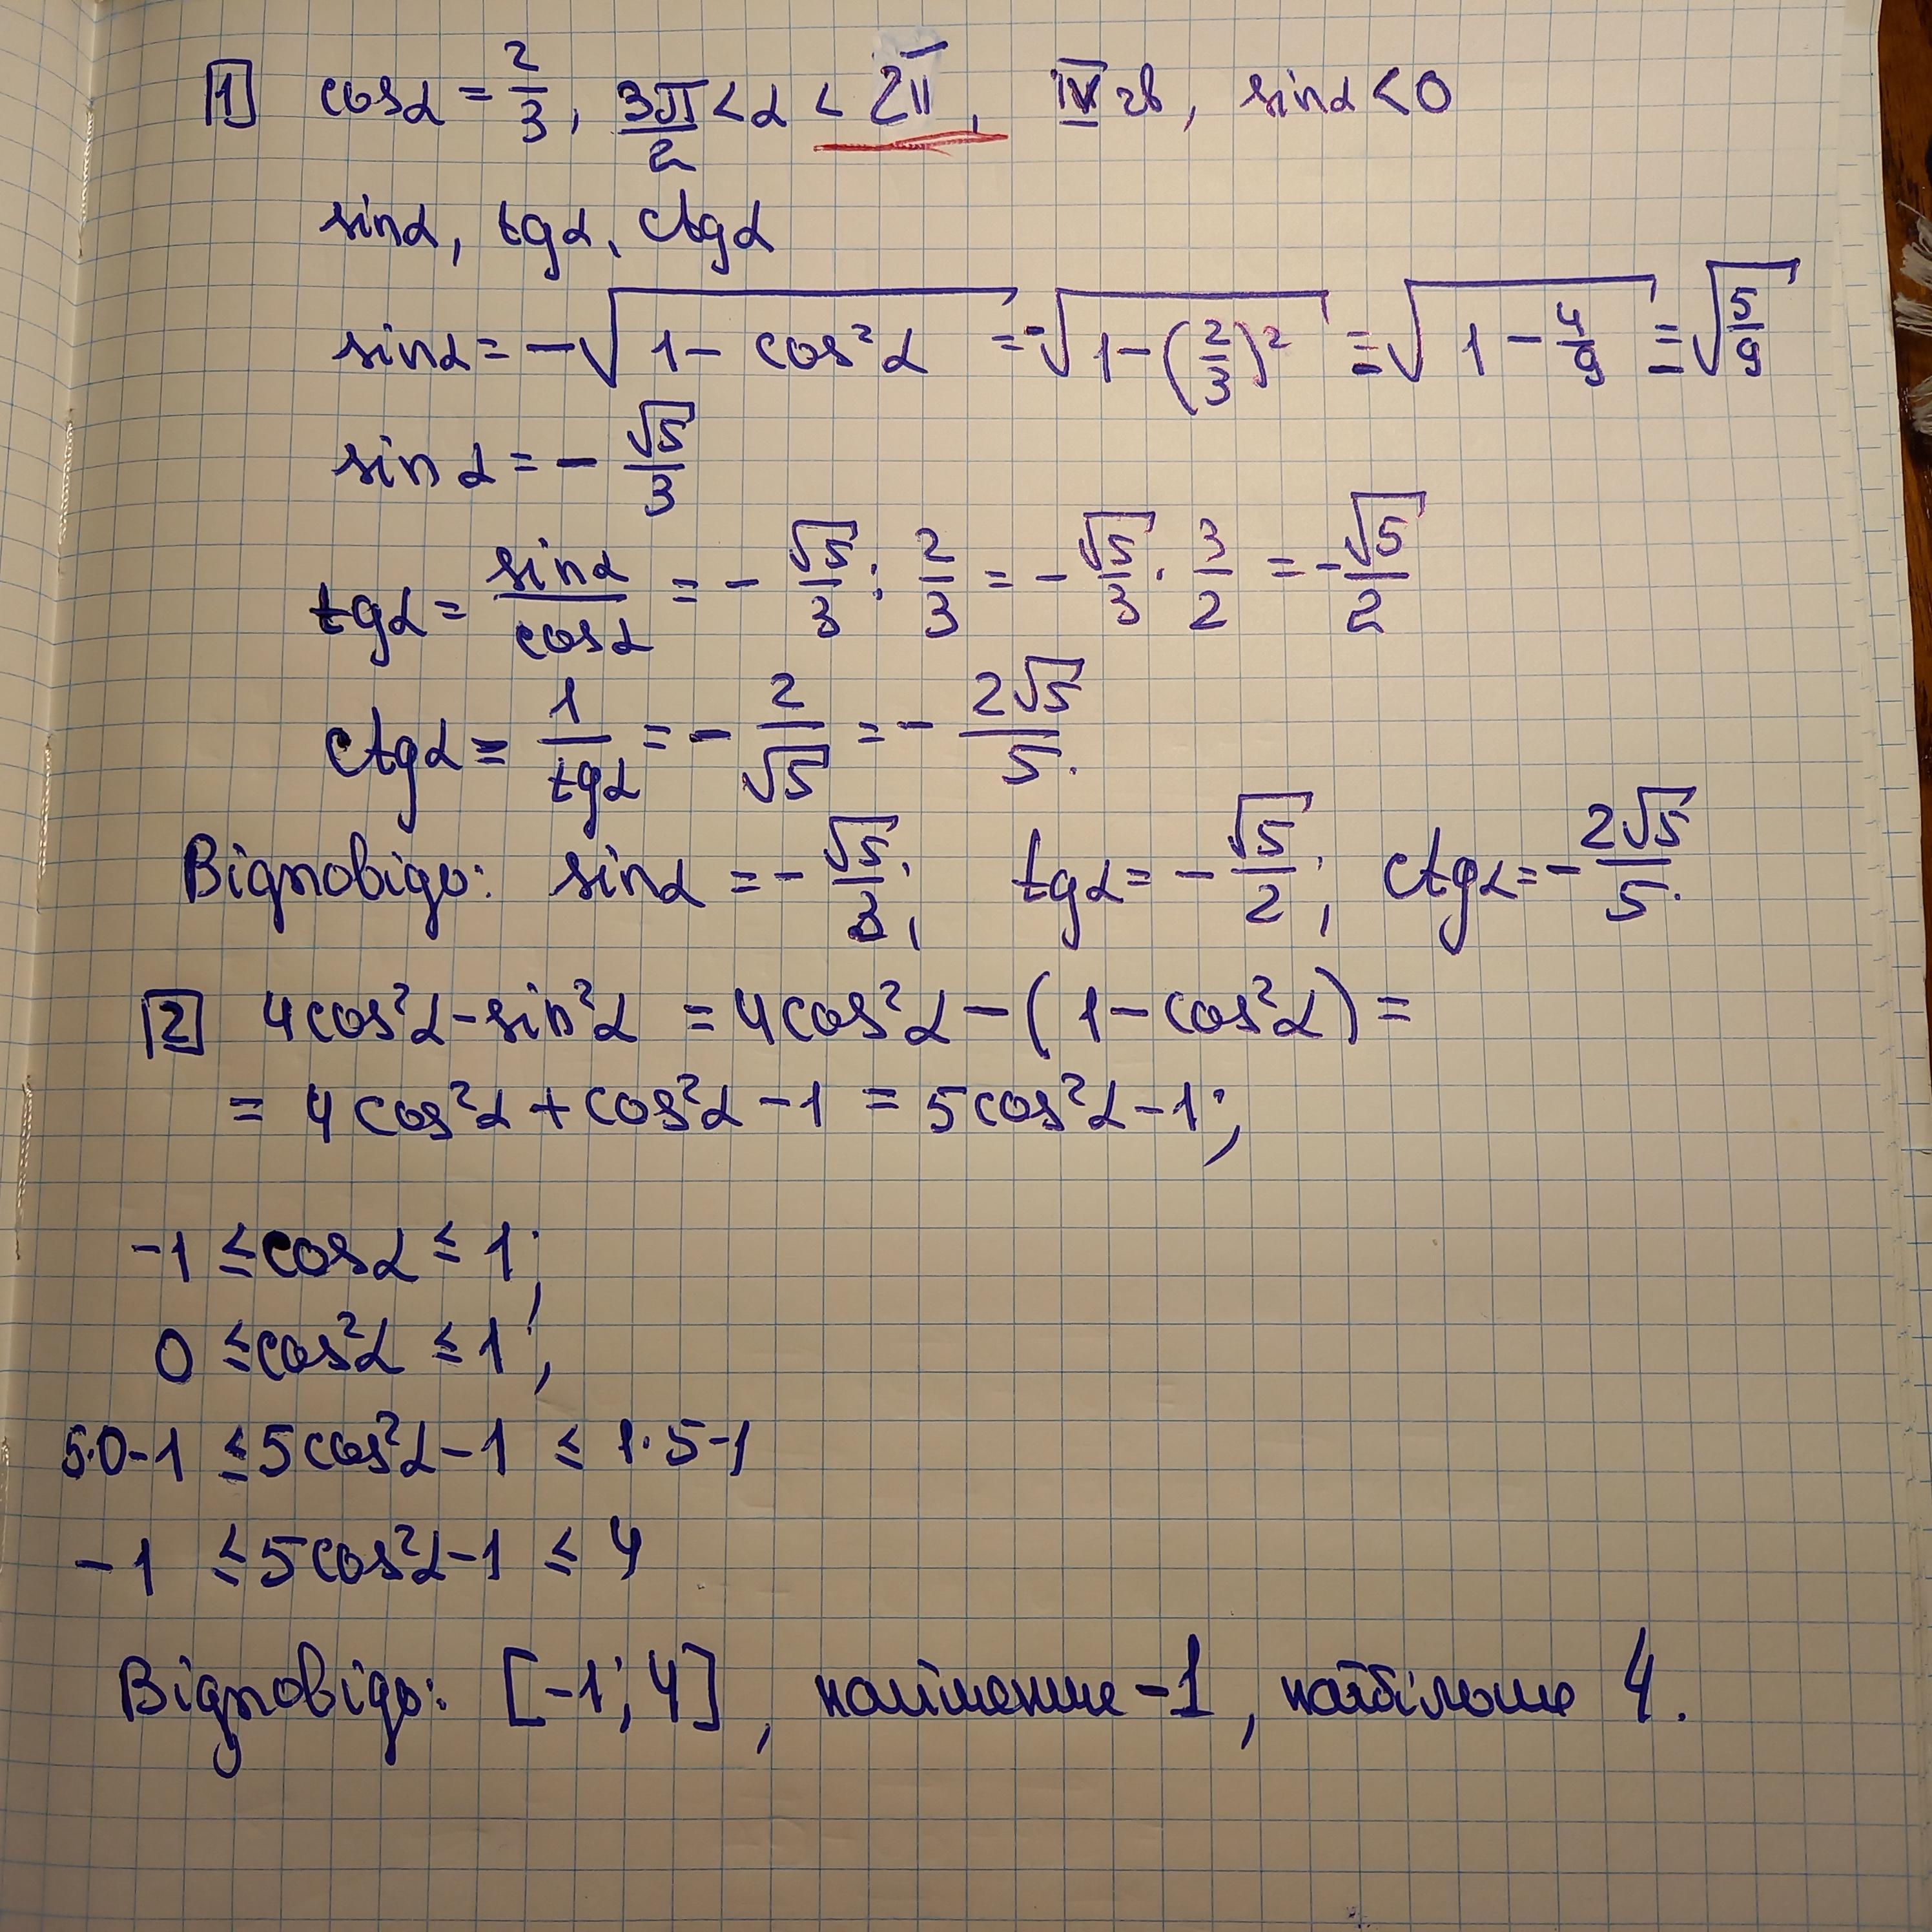 1 cosα = 2/3, 3π/2 < α < 2π, IV чв, sinα < 0
sinα, tgα, ctgα
sinα = -√(1 - cos²α) = -√(1 - (2/3)²) = -√(1 - 4/9) = -√(5/9)
sinα = - √5/3
tgα = sinα/cosα = - √5/3 : 2/3 = - √5/3 · 3/2 = - √5/2
ctgα = 1/tgα = - 2/√5 = - 2√5/5.
Відповідь: sinα = - √5/3; tgα = - √5/2; ctgα = - 2√5/5.
2 4cos²α - sin²α = 4cos²α - (1 - cos²α) =
= 4cos²α + cos²α - 1 = 5cos²α - 1;
-1 ≤ cosα ≤ 1;
0 ≤ cos²α ≤ 1;
5·0-1 ≤ 5cos²α - 1 ≤ 1·5-1
-1 ≤ 5cos²α - 1 ≤ 4
Відповідь: [-1; 4], найменше -1, найбільше 4.